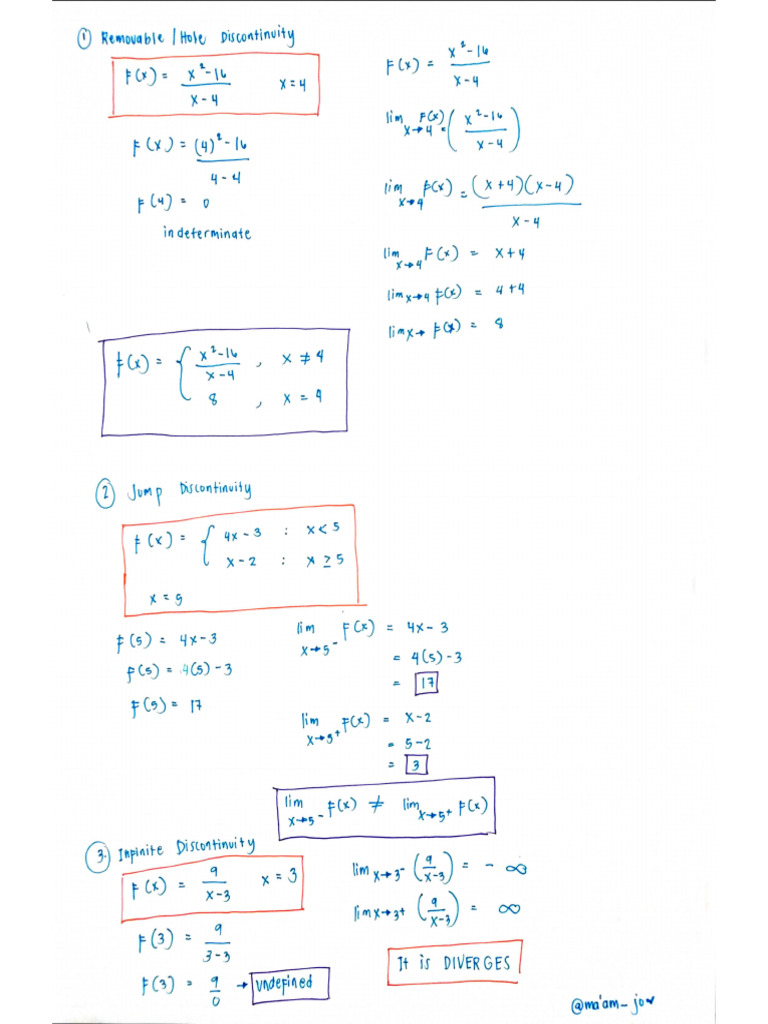 ① Removable / Hole Discontinuity
F(x) = x² - 16 / x - 4    x = 4
F(x) = (4)² - 16 / 4 - 4
F(4) = 0
indeterminate
F(x) = x² - 16 / x - 4
lim x→4 F(x) = ( x² - 16 / x - 4 )
lim x→4 F(x) = (x + 4)(x - 4) / x - 4
lim x→4 F(x) = x + 4
lim x→4 F(x) = 4 + 4
lim x→ F(x) = 8
F(x) = { x² - 16 / x - 4 , x ≠ 4
8 , x = 4
② Jump Discontinuity
F(x) = { 4x - 3 : x < 5
x - 2 : x ≥ 5
x = 5
F(5) = 4x - 3
F(5) = 4(5) - 3
F(5) = 17
lim x→5⁻ F(x) = 4x - 3
= 4(5) - 3
= 17
lim x→5⁺ F(x) = x - 2
= 5 - 2
= 3
lim x→5⁻ F(x) ≠ lim x→5⁺ F(x)
③. Inpinite Discontinuity
F(x) = 9 / x - 3    x = 3
F(3) = 9 / 3 - 3
F(3) = 9 / 0 → undefined
lim x→3⁻ ( 9 / x - 3 ) = - ∞
lim x→3⁺ ( 9 / x - 3 ) = ∞
It is DIVERGES
@ma'am_jow